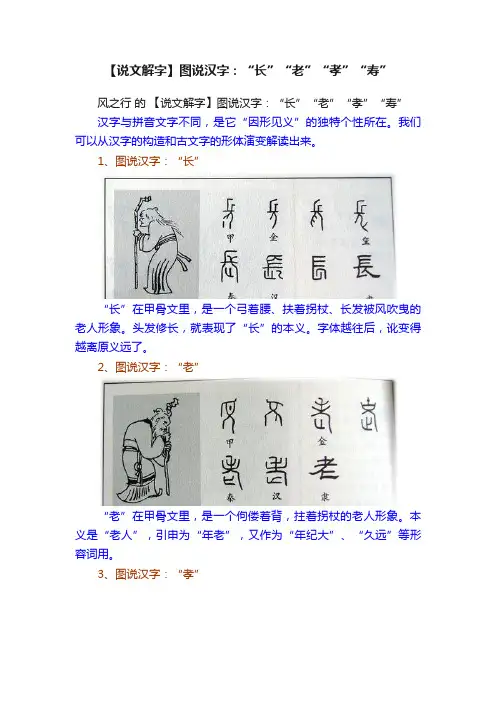 【说文解字】图说汉字：“长”“老”“孝”“寿”
风之行 的 【说文解字】图说汉字：“长”“老”“孝”“寿”
汉字与拼音文字不同，是它“因形见义”的独特个性所在。我们
可以从汉字的构造和古文字的形体演变解读出来。
1、图说汉字：“长”
甲 金
秦 汉
長
“长”在甲骨文里，是一个弓着腰、扶着拐杖、长发被风吹曳的
老人形象。头发修长，就表现了“长”的本义。字体越往后，讹变得
越离原义远了。
2、图说汉字：“老”
甲 金
老
秦 汉 隶
“老”在甲骨文里，是一个佝偻着背，拄着拐杖的老人形象。本
义是“老人”，引申为“年老”，又作为“年纪大”、“久远”等形
容词用。
3、图说汉字：“孝”